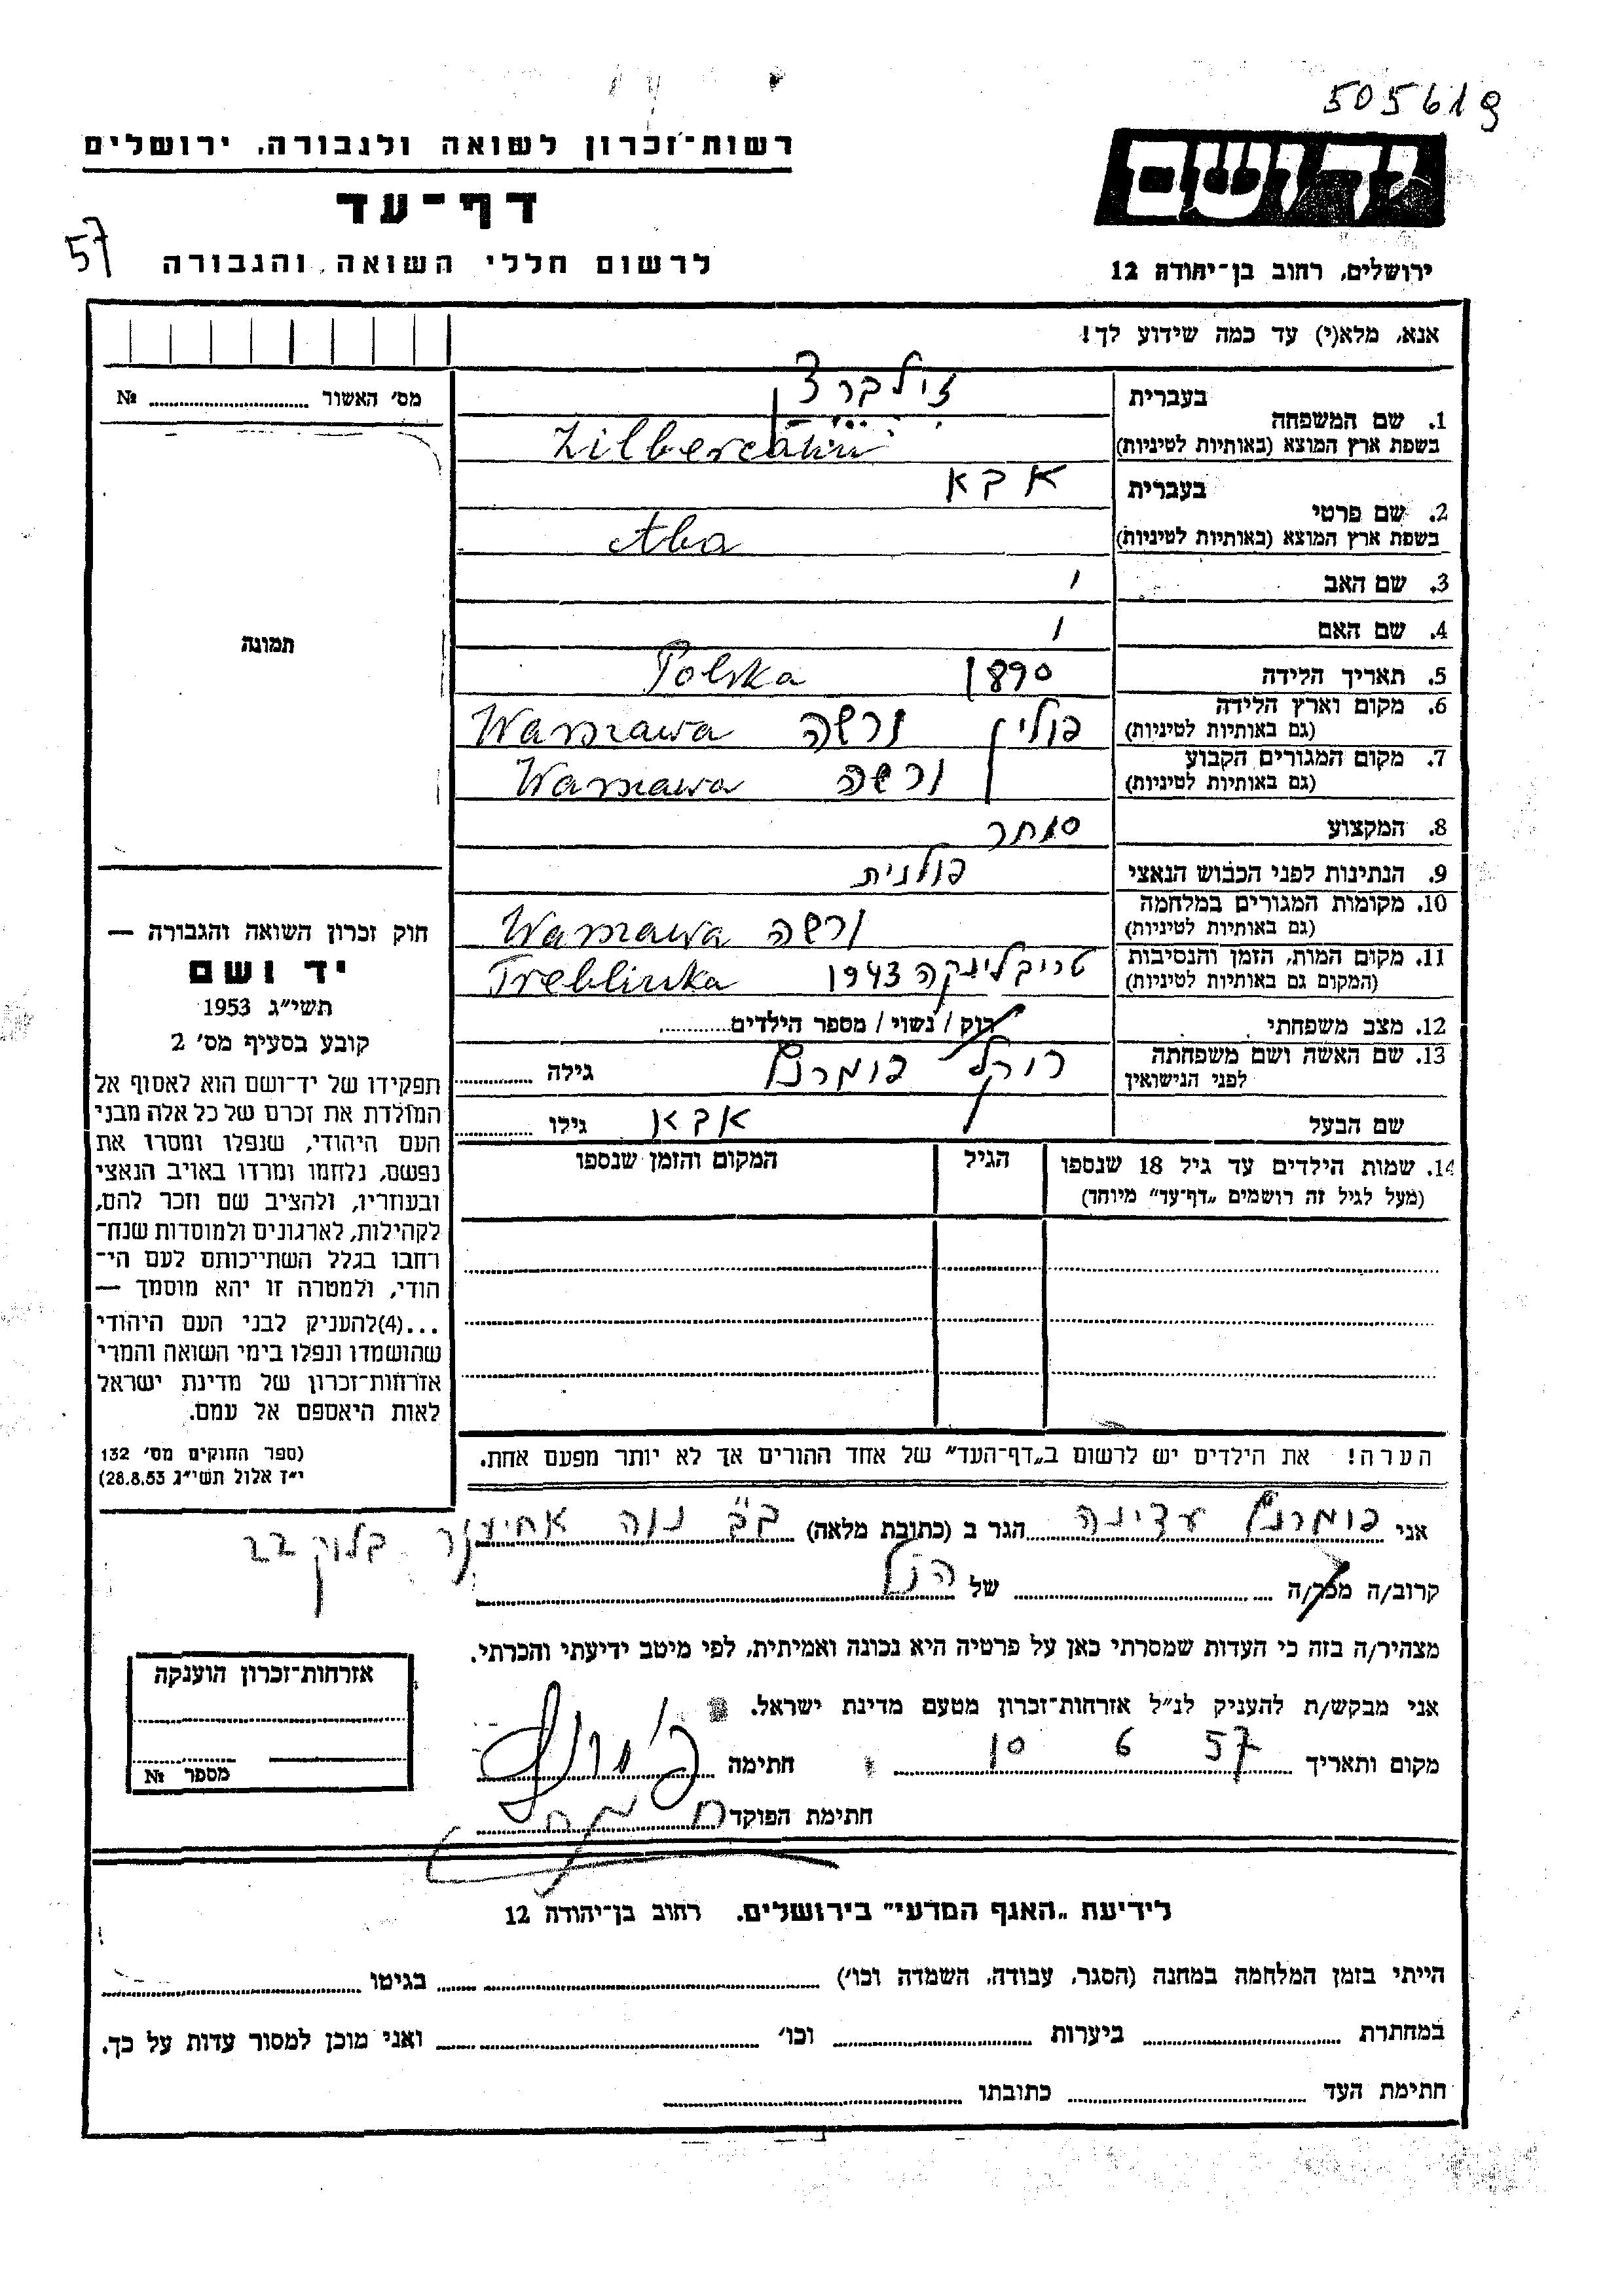 505619
רשות־זכרון לשואה ולגבורה, ירושלים
יד ושם
דף־עד
57
לרשום חללי השואה והגבורה
ירושלים, רחוב בן־יהודה 12
אנא, מלא(י) עד כמה שידוע לך!
מס׳ האשור №
1. שם המשפחה
בעברית
בשפת ארץ המוצא (באותיות לטיניות)
2. שם פרטי
בעברית אבא
בשפת ארץ המוצא (באותיות לטיניות) Aba
3. שם האב
4. שם האם
תמונה
5. תאריך הלידה 1890 Polska
6. מקום וארץ הלידה
(גם באותיות לטיניות) פולין ורשה Warszawa
7. מקום המגורים הקבוע
(גם באותיות לטיניות) ורשה Warszawa
8. המקצוע סוחר
9. הנתינות לפני הכבוש הנאצי פולנית
10. מקומות המגורים במלחמה
(גם באותיות לטיניות) ורשה Warszawa
11. מקום המות, הזמן והנסיבות
(המקום גם באותיות לטיניות) טריבלינקה 1943 Treblinka
12. מצב משפחתי רוק / נשוי / מספר הילדים
13. שם האשה ושם משפחתה
לפני הנישואין פומרנץ גילה
שם הבעל אבא גילו
14. שמות הילדים עד גיל 18 שנספו
(מעל לגיל זה רושמים „דף־עד״ מיוחד)
הגיל
המקום והזמן שנספו
הערה! את הילדים יש לרשום ב„דף־העד״ של אחד ההורים אך לא יותר מפעם אחת.
חוק זכרון השואה והגבורה —
יד ושם
תשי״ג 1953
קובע בסעיף מס׳ 2
תפקידו של יד־ושם הוא לאסוף אל
המולדת את זכרם של כל אלה מבני
העם היהודי, שנפלו ומסרו את
נפשם, נלחמו ומרדו באויב הנאצי
ובעוזריו, ולהציב שם וזכר להם,
לקהילות, לארגונים ולמוסדות שנח־
רחבו בגלל השתייכותם לעם הי־
הודי, ולמטרה זו יהא מוסמך —
...(4)להעניק לבני העם היהודי
שהושמדו ונפלו בימי השואה והמרי
אזרחות־זכרון של מדינת ישראל
לאות היאספם אל עמם.
(ספר החוקים מס׳ 132
י״ז אלול תשי״ג 28.8.53)
אני פומרנץ עדינה הגר ב (כתובת מלאה) ב״ב נוה אחיעזר בלוק 22
קרוב/ה מכר/ה של הנ״ל
מצהיר/ה בזה כי העדות שמסרתי כאן על פרטיה היא נכונה ואמיתית, לפי מיטב ידיעתי והכרתי.
אני מבקש/ת להעניק לנ״ל אזרחות־זכרון מטעם מדינת ישראל.
מקום ותאריך 10 6 57 חתימה
חתימת הפוקד
אזרחות־זכרון הוענקה
מספר №
לידיעת „האגף המדעי״ בירושלים. רחוב בן־יהודה 12
הייתי בזמן המלחמה במחנה (הסגר, עבודה, השמדה וכו׳) בגיטו
במחתרת ביערות וכו׳ ואני מוכן למסור עדות על כך.
חתימת העד כתובתו